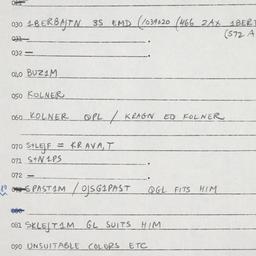 030 1BERBAJTN 3S EMD (1039020 (466 2AX 1BERT
(572 A
031
032 —
040 BUZ1M
050 KOLNER
060 KOLNER QPL / KRAGN ED KOLNER
070 S1LEJF = KRAVA,T
071 S1N1PS
072 —
GPAST1M / OJSG1PAST QGL FITS HIM
080
081 SKLEJT1M GL SUITS HIM
090 UNSUITABLE COLORS ETC